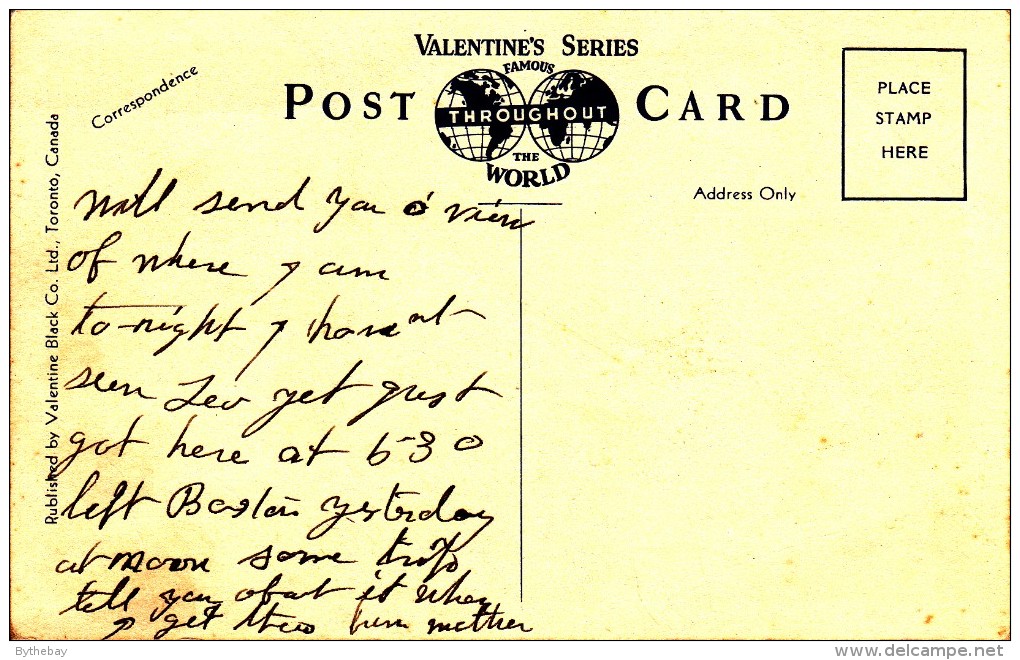 VALENTINE'S SERIES
FAMOUS
THROUGHOUT
THE
WORLD
POST CARD
Correspondence
Address Only
PLACE
STAMP
HERE
Published by Valentine Black Co. Ltd., Toronto, Canada
Will send you a view
of where I am
to-night I havent
seen Leo yet just
got here at 6-30
left Boston yesterday
at noon some trip
tell you about it when
I get there mother
Bythebay
delcampe.net